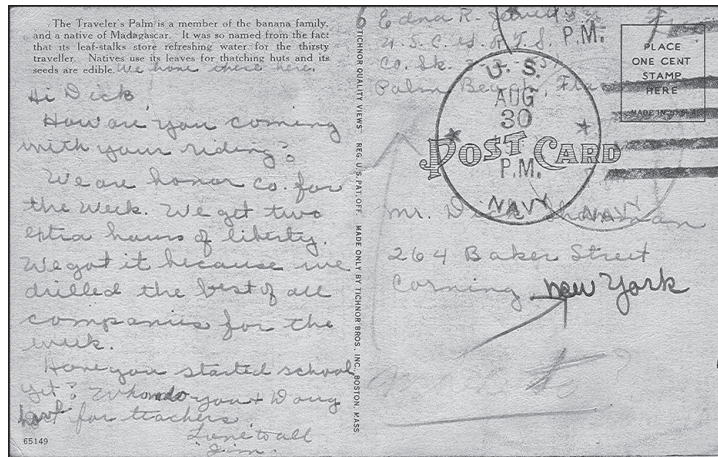 The Traveler's Palm is a member of the banana family,
and a native of Madagascar. It was so named from the fact
that its leaf-stalks store refreshing water for the thirsty
traveller. Natives use its leaves for thatching huts and its
seeds are edible. We have these here.
Hi Dick,
How are you coming
with your riding?
We are honor co. for
the week. We get two
extra hours of liberty.
We got it because we
drilled the best of all
companies for the
week.
Have you started school
yet? Who do you & Doug
have for teachers
Love to all
65149
TICHNOR QUALITY VIEWS REG. U. S. PAT. OFF. MADE ONLY BY TICHNOR BROS., INC., BOSTON, MASS.
Edna R.
U.S.C.G.R.T.S.
Co.
Palm Beach, Fla
P.M.
U. S.
AUG
30
P.M.
NAVY
NAVY
PLACE
ONE CENT
STAMP
HERE
MADE IN U.S.A.
POST CARD
Mr. Dick
264 Baker Street
Corning New York